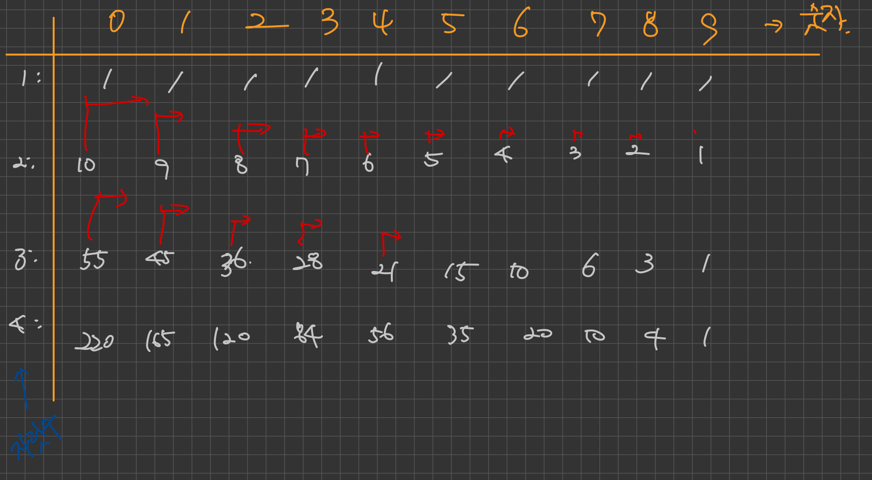 0 1 2 3 4 5 6 7 8 9 → 숫자.
1: 1 1 1 1 1 1 1 1 1 1
2: 10 9 8 7 6 5 4 3 2 1
3: 55 45 36 28 21 15 10 6 3 1
4: 220 165 120 84 56 35 20 10 4 1
자릿수